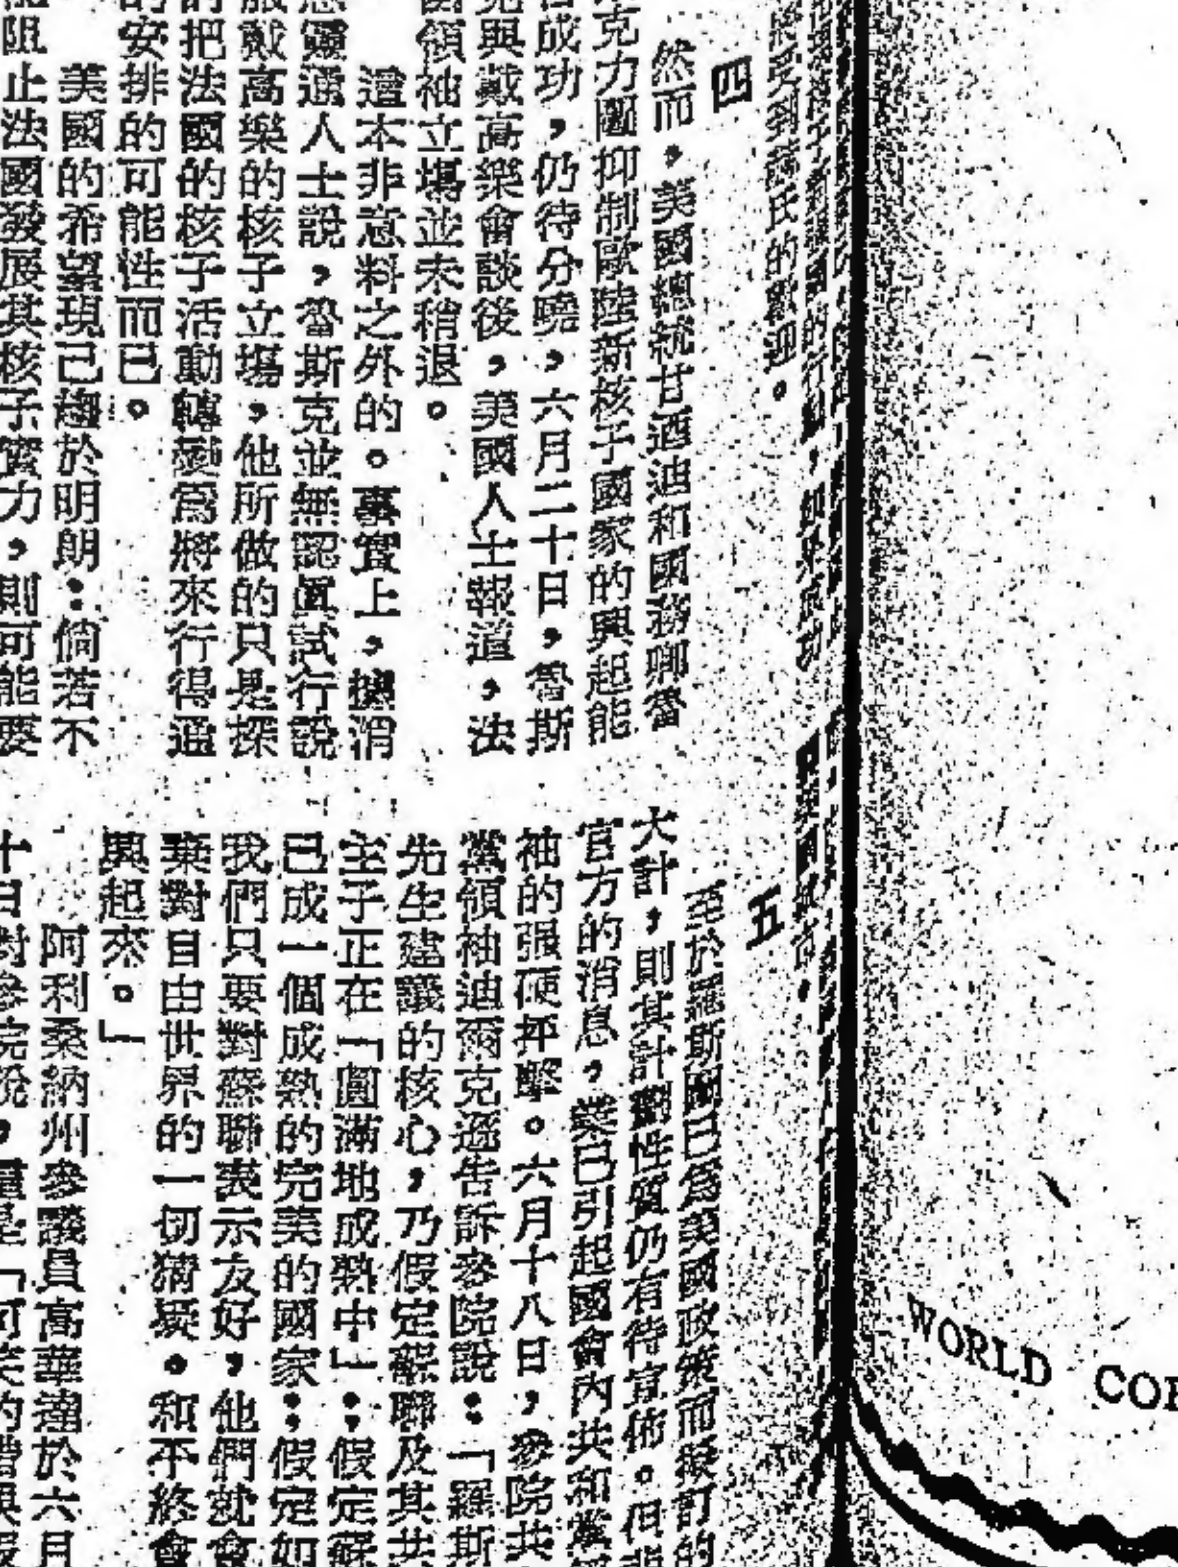 將受到蘇氏的歡迎。
四
然而,美國總統甘迺迪和國務卿魯
斯克力圖抑制歐陸新核子國家的興起能
否成功,仍待分曉,六月二十日,魯斯
克與戴高樂會談後,美國人士報道,法
國領袖立塲並未稍退。
這本非意料之外的。事實上,據消
息靈通人士說,魯斯克並無認眞試行說
服戴高樂的核子立塲,他所做的只是探
的把法國的核子活動轉變爲將來行得通
的安排的可能性而已。
美國的希望現已趨於明朗:倘若不
能阻止法國發展其核子實力,則可能要
五
至於羅斯圖已爲美國政策而擬訂的
大計,則其計劃性質仍有待宣佈。但非
官方的消息,業已引起國會內共和黨領
袖的强硬抨擊。六月十八日,參院共
黨領袖迪爾克遜告訴參院說:「羅斯
先生建議的核心,乃假定蘇聯及其共
主子正在「圓滿地成熟中」;假定蘇
已成一個成熟的完美的國家;假定如
我們只要對蘇聯表示友好,他們就會
棄對自由世界的一切猜疑。和平終會
興起來。」
阿利桑納州參議員高華達於六月
十日對參院說,這是「可笑的
WORLD COP